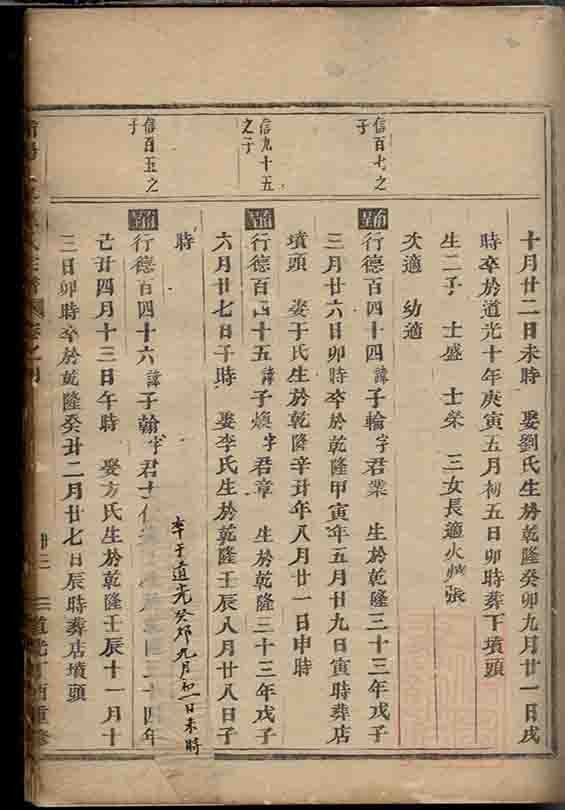 十月廿二日未時　娶劉氏生於乾隆癸卯九月廿一日戌
時卒於道光十年庚寅五月初五日卯時葬下墳頭
生二子　士盛　士榮　三女長適火燒張
次適　幼適
信百七之子
行德百四十四諱子輪字君業　生於乾隆三十三年戊子
三月廿六日卯時卒於乾隆甲寅年五月廿九日寅時葬店
墳頭　娶于氏生於乾隆辛丑年八月廿一日申時
信九十五之子
行德百四十五諱子煥字君章　生於乾隆三十三年戊子
六月廿七日子時　娶李氏生於乾隆壬辰八月廿八日子
時　卒于道光癸卯九月初一日未時
信百五之子
行德百四十六諱子翰字君士　三十四年
己丑四月十三日午時　娶方氏生於乾隆壬辰十一月十
三日卯時卒於乾隆癸丑二月廿七日辰時葬店墳頭
道光丁酉重修